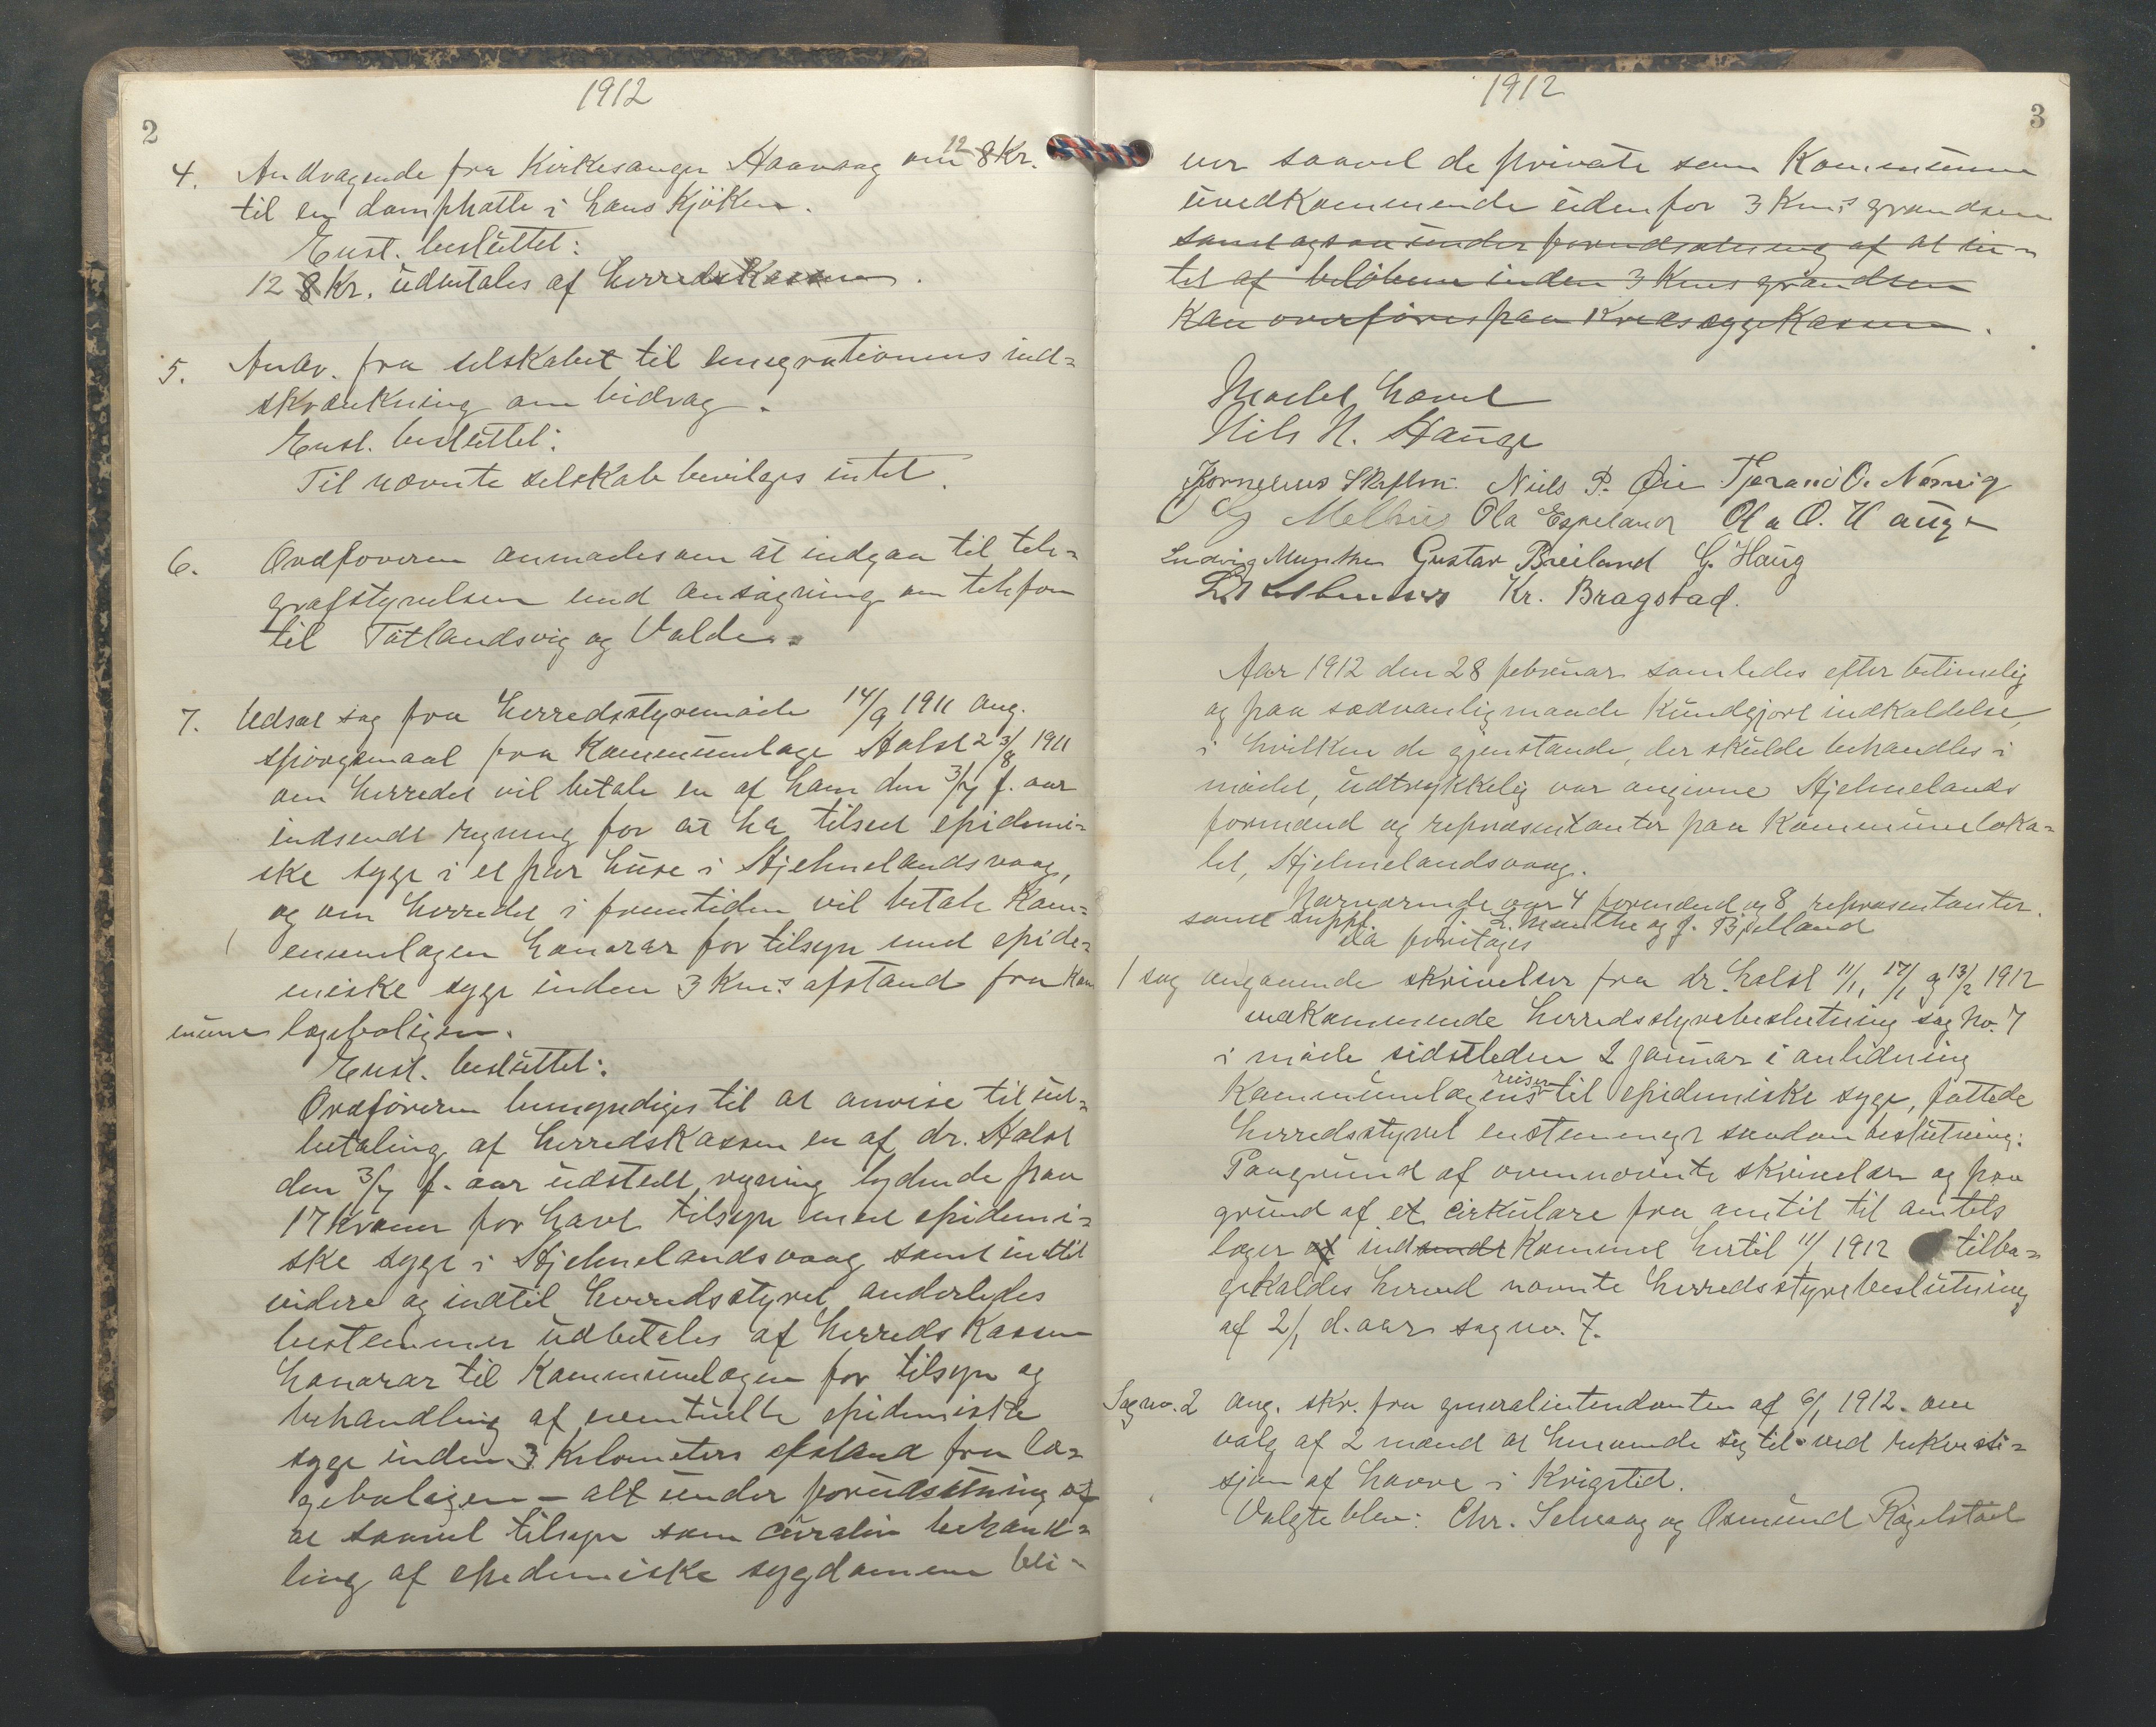 1912
2
4. Andragende fra Kirkesanger Haavaag om 12 8 Kr.
til en damphatte i hans Kjøken.
Enst. besluttet:
12 8 Kr. udbetales af herredsKassen.
5. Andr. fra selskabet til emegrationens ind-
skrænkning om bidrag.
Enst. besluttet:
Til nævnte selskab bevilges intet.
6. Ordføreren anmodes om at indgaa til tele-
grafstyrelsen med ansøgning om telefon
til Tøtlandsvig og Valde.
7. Udsat sag fra herredsstyremøde 14/9 1911 ang.
spørgsmaal fra Kommunelæge Holst 23/8 1911
om herredet vil betale en af ham den 3/7 f. aar
indsendt regning for at ha tilseet epidemi-
ske syge i et par huse i Hjelmelandsvaag,
og om herredet i fremtiden vil betale Kom-
munelægen honorar for tilsyn med epide-
miske syge inden 3 Kms afstand fra Kom
mune lægeboligen.
Enst. besluttet:
Ordføreren bemyndiges til at anvise til ud-
betaling af herredsKassen en af dr. Holst
den 3/7 f. aar udstedt regning lydende paa
17 Kroner for havt tilsyn med epidemi-
ske syge i Hjelmelandsvaag samt indtil
videre og indtil herredsstyret anderledes
bestemmer udbetales af herredsKassen
honorar til Kommunelægen for tilsyn og
behandling af eventuelle epidemiske
syge inden 3 Kilometers afstand fra læ-
geboligen - alt under forudsætning af
at saavel tilsyn som curativ behand-
ling af epedemiske sygdomme bli-
1912
3
ver saavel de private som Kommunen
uvedkommende udenfor 3 Kms grændsen
samt ogsaa under forudsætning af at in-
tet af beløbene inden 3 Kms grændsen
Kan overføres paa KredssygeKassen.
Nils N. Hauge
Kornelius Niels P. Øie Tjerand O.
Melhus Ola Espeland Ola O. Hauge
Ludvig Munthe Gustav Breiland G. Haug
Kr. Bragstad.
Aar 1912 den 28 februar samledes efter betimelig
og paa sædvanlig maade Kundgjort indkaldelse,
i hvilken de gjenstande, der skulde behandles i
mødet, udtrykkelig var angivne Hjelmelands
formænd og repræsentanter paa Kommuneloka-
let, Hjelmelandsvaag.
Nærværende var 4 formænd og 8 repræsentanter.
samt suppl. J. L. Munthe og J. Bjelland
Da foretages
1 sag angaaende skrivelser fra dr. holst 11/1, 17/1 og 13/2 1912
vedKommende herredsstyrebeslutning sag No. 7
i møde sidstleden 2 januar i anledning
Kommunelægens reiser til epidemiske syge, fattede
herredsstyret enstemmigt saadan beslutning:
Paagrund af ovennævnte skrivelser og paa
grund af et cirkulære fra amtet til amtets
læger af indsendt Kommet hertil 11/1 1912 tilba-
gekaldes herved nævnte herredsstyrebeslutning
af 2/1 d. aar sag no. 7.
Sag no. 2 ang. skr. fra generalintendanten af 6/1 1912 om
valg af 2 mænd at henvende sig til ved rekvisi-
sjon af havre i Krigstid.
Valgte blev: Chr. Selvaag og Osmund Røgelstad